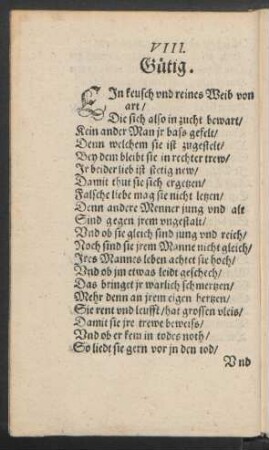 VIII.
Gütig.
EIn keusch vnd reines Weib von
art/
Die sich also in zucht bewart/
Kein ander Man jr bass gefelt/
Denn welchem sie ist zugestelt/
Bey dem bleibt sie in rechter trew/
Jr beider lieb ist stetig new/
Damit thut sie sich ergetzen/
Falsche liebe mag sie nicht letzen/
Denn andere Menner jung vnd alt
Sind gegen jrem vngestalt/
Vnd ob sie gleich sind jung vnd reich/
Noch sind sie jrem Manne nicht gleich/
Jres Mannes leben achtet sie hoch/
Vnd ob jm etwas leidt geschech/
Das bringet jr warlich schmertzen/
Mehr denn an jrem eigen hertzen/
Sie rent vnd leufft/ hat grossen vleis/
Damit sie jre trewe beweiss/
Vnd ob er kem in todes noth/
So liedt sie gern vor jn den tod/
Vnd